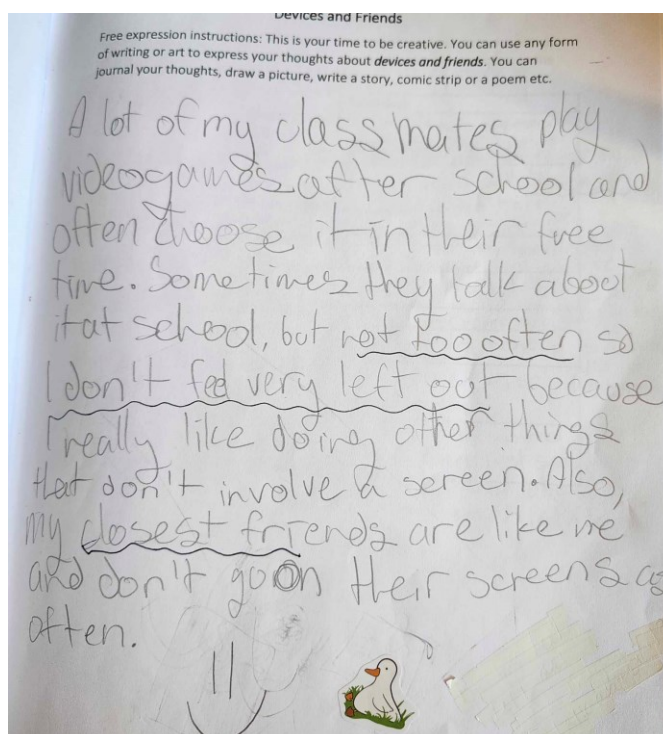 Devices and Friends
Free expression instructions: This is your time to be creative. You can use any form
of writing or art to express your thoughts about devices and friends. You can
journal your thoughts, draw a picture, write a story, comic strip or a poem etc.
A lot of my classmates play
videogames after school and
often choose it in their free
time. Sometimes they talk about
it at school, but not too often so
I don't feel very left out because
I really like doing other things
that don't involve a screen. Also,
my closest friends are like me
and don't go on their screens as
often.